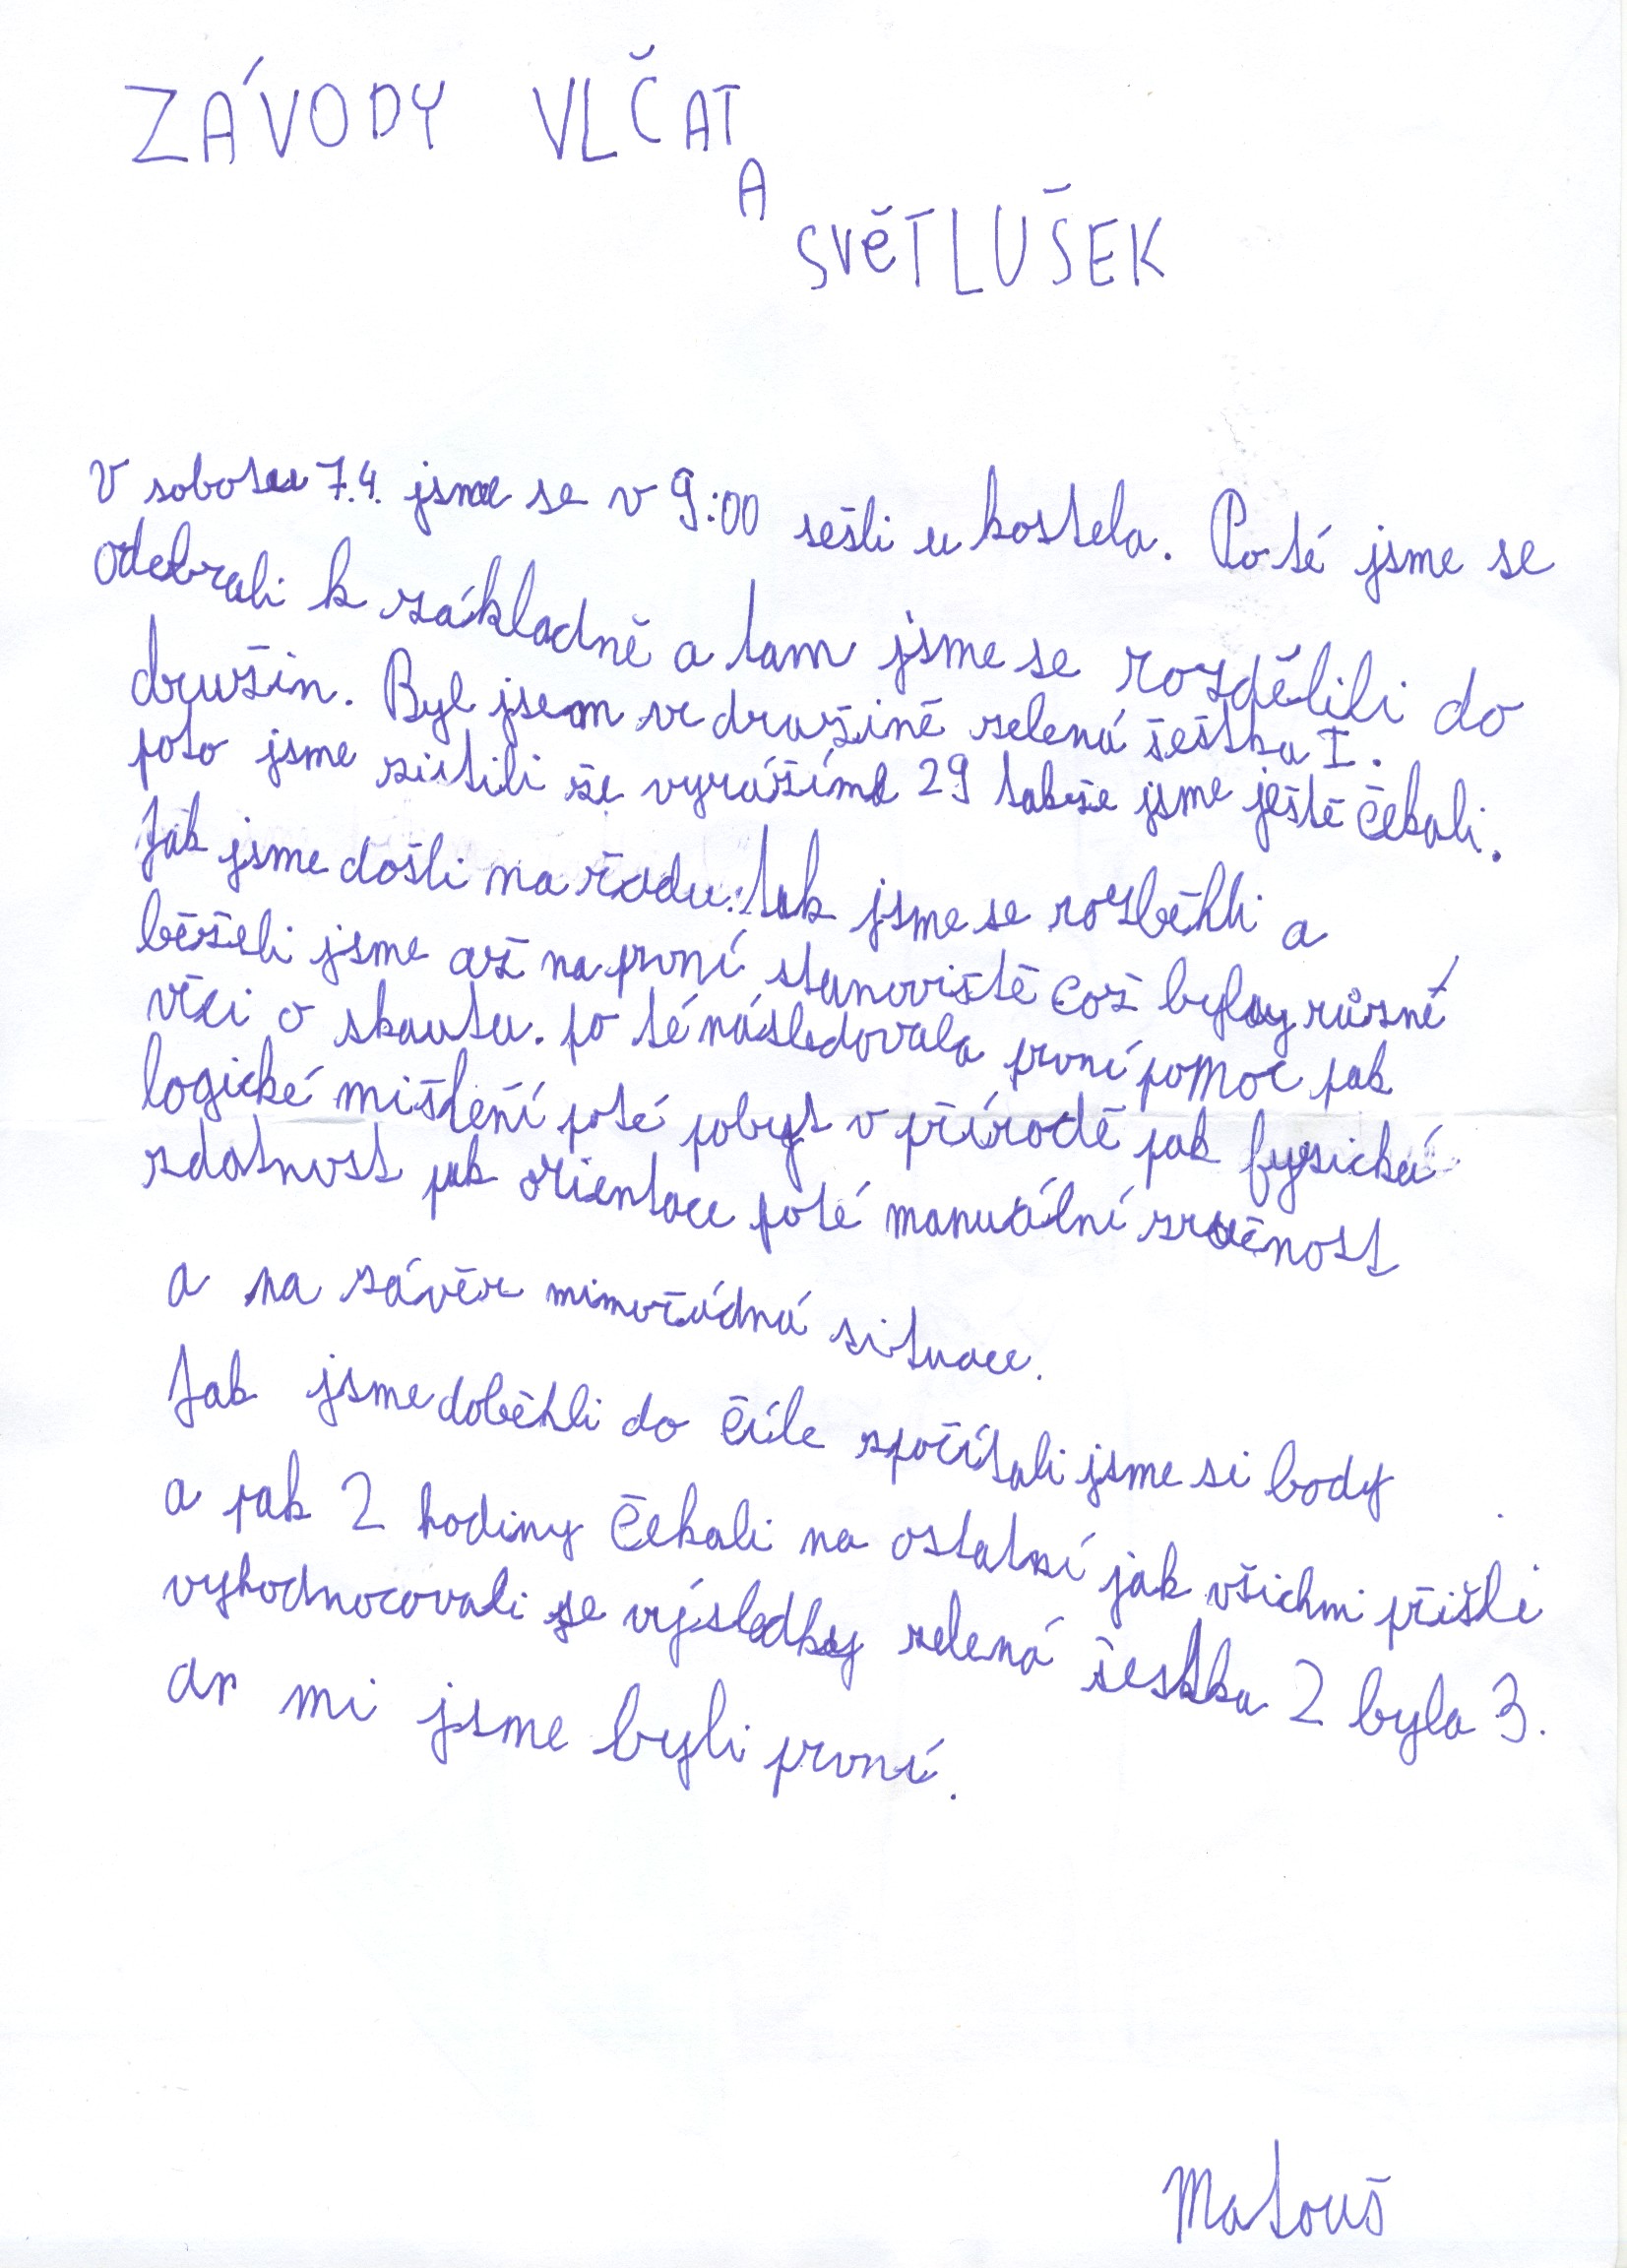 ZÁVODY VLČAT
A
SVĚTLUŠEK
V sobotu 7.4. jsme se v 9:00 sešli u kostela. Po té jsme se
odebrali k základně a tam jsme se rozdělili do
družin. Byl jsem ve družině zelená šeštka I.
poto jsme zistili že vyrážíme 29 takže jsme ještě čekali.
Jak jsme došli na řadu tak jsme se rozběhli a
běželi jsme až na první stanoviště což byly různé
věci o skautu. po té následovala první pomoc pak
logické mišlení poté pobyt v přírodě pak fyzická
zdatnost pak orientace poté manuální zručnost
a na závěr mimořádná situace.
Jak jsme doběhli do číle spočítali jsme si body
a pak 2 hodiny čekali na ostatní jak všichni přišli
vyhodnocovali se výsledky zelená šestka 2 byla 3.
a mi jsme byli první.
Matouš